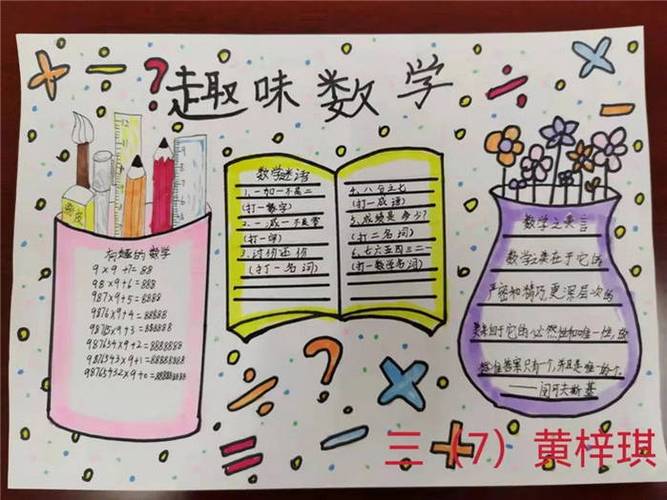 趣味数学
橡皮
有趣的数学
9×9+7=88
98×9+6=888
987×9+5=8888
9876×9+4=88888
98765×9+3=888888
987654×9+2=8888888
9876543×9+1=88888888
98765432×9+0=888888888
数学谜语
1、一加一不是二
(打一数字)
2、一减一不是零
(打一字)
3、讨价还价
(打一名词)
4、八分之七
(打一成语)
5、成绩是多少?
(打二名词)
6、七六五四三二一
(打一数学名词)
数学之美言
数学之美在于它的
严密和精巧更深层次的
美在于它的必然性和唯一性,
答案只有一个,并且是唯一的一个。
三(7)黄梓琪